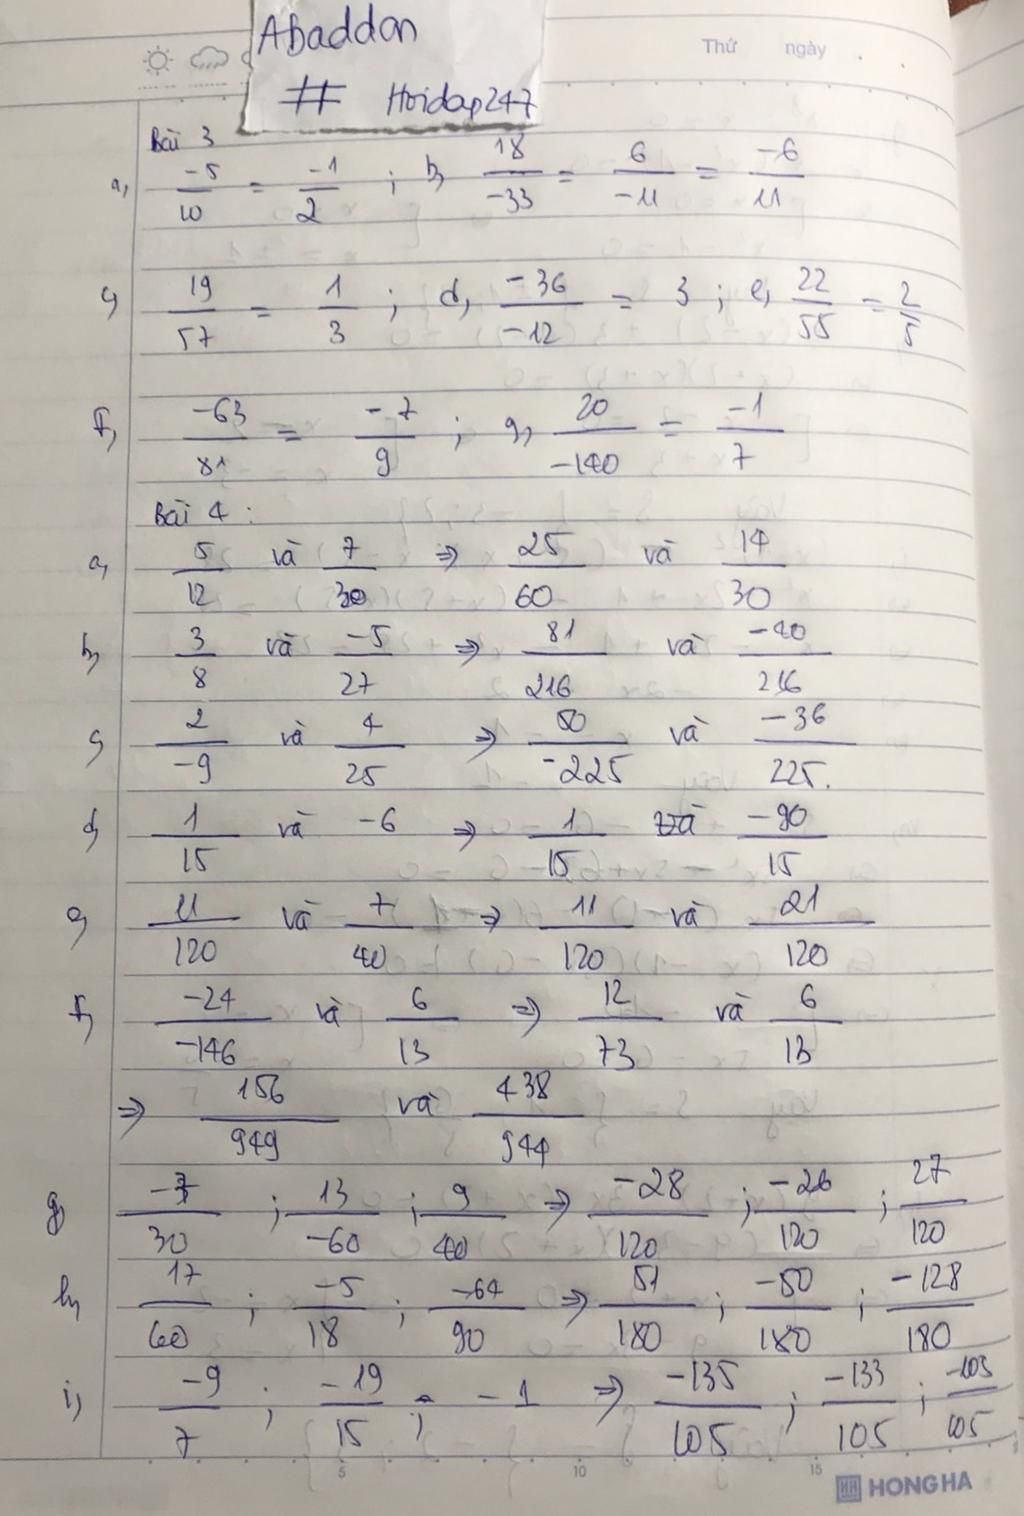 Abaddon
# Hoidap247
Thứ ngày
Bài 3
a, -5/10 = -1/2 ; b, 18/-33 = 6/-11 = -6/11
c, 19/57 = 1/3 ; d, -36/-12 = 3 ; e, 22/55 = 2/5
f, -63/81 = -7/9 ; g, 20/-140 = -1/7
Bài 4 :
a, 5/12 và 7/30 => 25/60 và 14/30
b, 3/8 và -5/27 => 81/216 và -40/216
c, 2/-9 và 4/25 => 50/-225 và -36/225.
d, 1/15 và -6 => 1/15 và -90/15
e, 11/120 và 7/40 => 11/120 và 21/120
f, -24/-146 và 6/13 => 12/73 và 6/13
=> 156/949 và 438/944
g, -7/30 ; 13/-60 ; 9/40 => -28/120 ; -26/120 ; 27/120
h, 17/60 ; -5/18 ; -64/90 => 51/180 ; -50/180 ; -128/180
i, -9/7 ; -19/15 ; -1 => -135/105 ; -133/105 ; -105/105
5 10 15
HONG HA